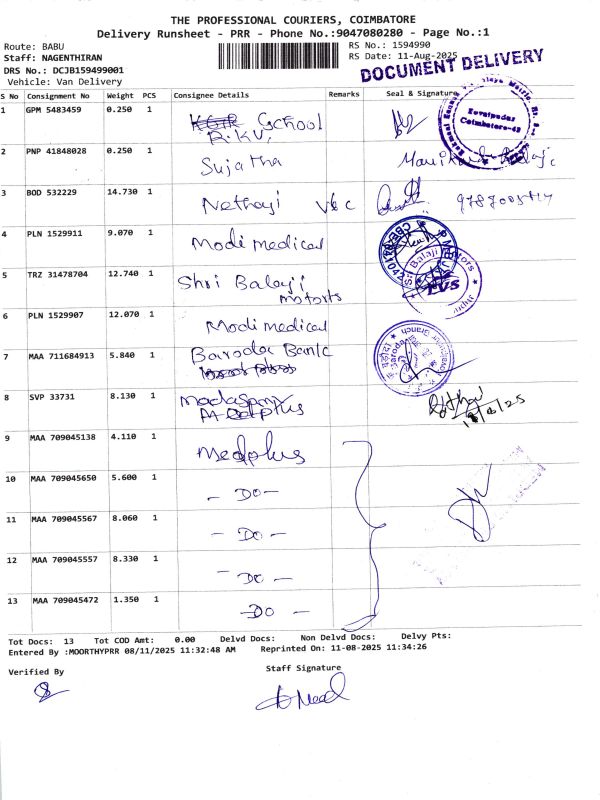 THE PROFESSIONAL COURIERS, COIMBATORE
Delivery Runsheet - PRR - Phone No.:9047080280 - Page No.:1
Route: BABU
RS No.: 1594990
Staff: NAGENTHIRAN
RS Date: 11-Aug-2025
DRS No.: DCJB159499001
Vehicle: Van Delivery
DOCUMENT DELIVERY
S No Consignment No Weight PCS Consignee Details Remarks Seal & Signature
1 GPM 5483459 0.250 1 School
Coimbatore-43
2 PNP 41848028 0.250 1 Sujatha
3 BOD 532229 14.730 1 Nethaji
4 PLN 1529911 9.070 1 Modi medical
5 TRZ 31478704 12.740 1 Shri Balaji
motors
Sri Balaji Motors
6 PLN 1529907 12.070 1 Modi medical
7 MAA 711684913 5.840 1 Baroda Bank
8 SVP 33731 8.130 1
9 MAA 709045138 4.110 1 Medplus
10 MAA 709045650 5.600 1 - Do -
11 MAA 709045567 8.060 1 - Do -
12 MAA 709045557 8.330 1 - Do -
13 MAA 709045472 1.350 1 - Do -
Tot Docs: 13 Tot COD Amt: 0.00 Delvd Docs: Non Delvd Docs: Delvy Pts:
Entered By :MOORTHYPRR 08/11/2025 11:32:48 AM Reprinted On: 11-08-2025 11:34:26
Verified By Staff Signature